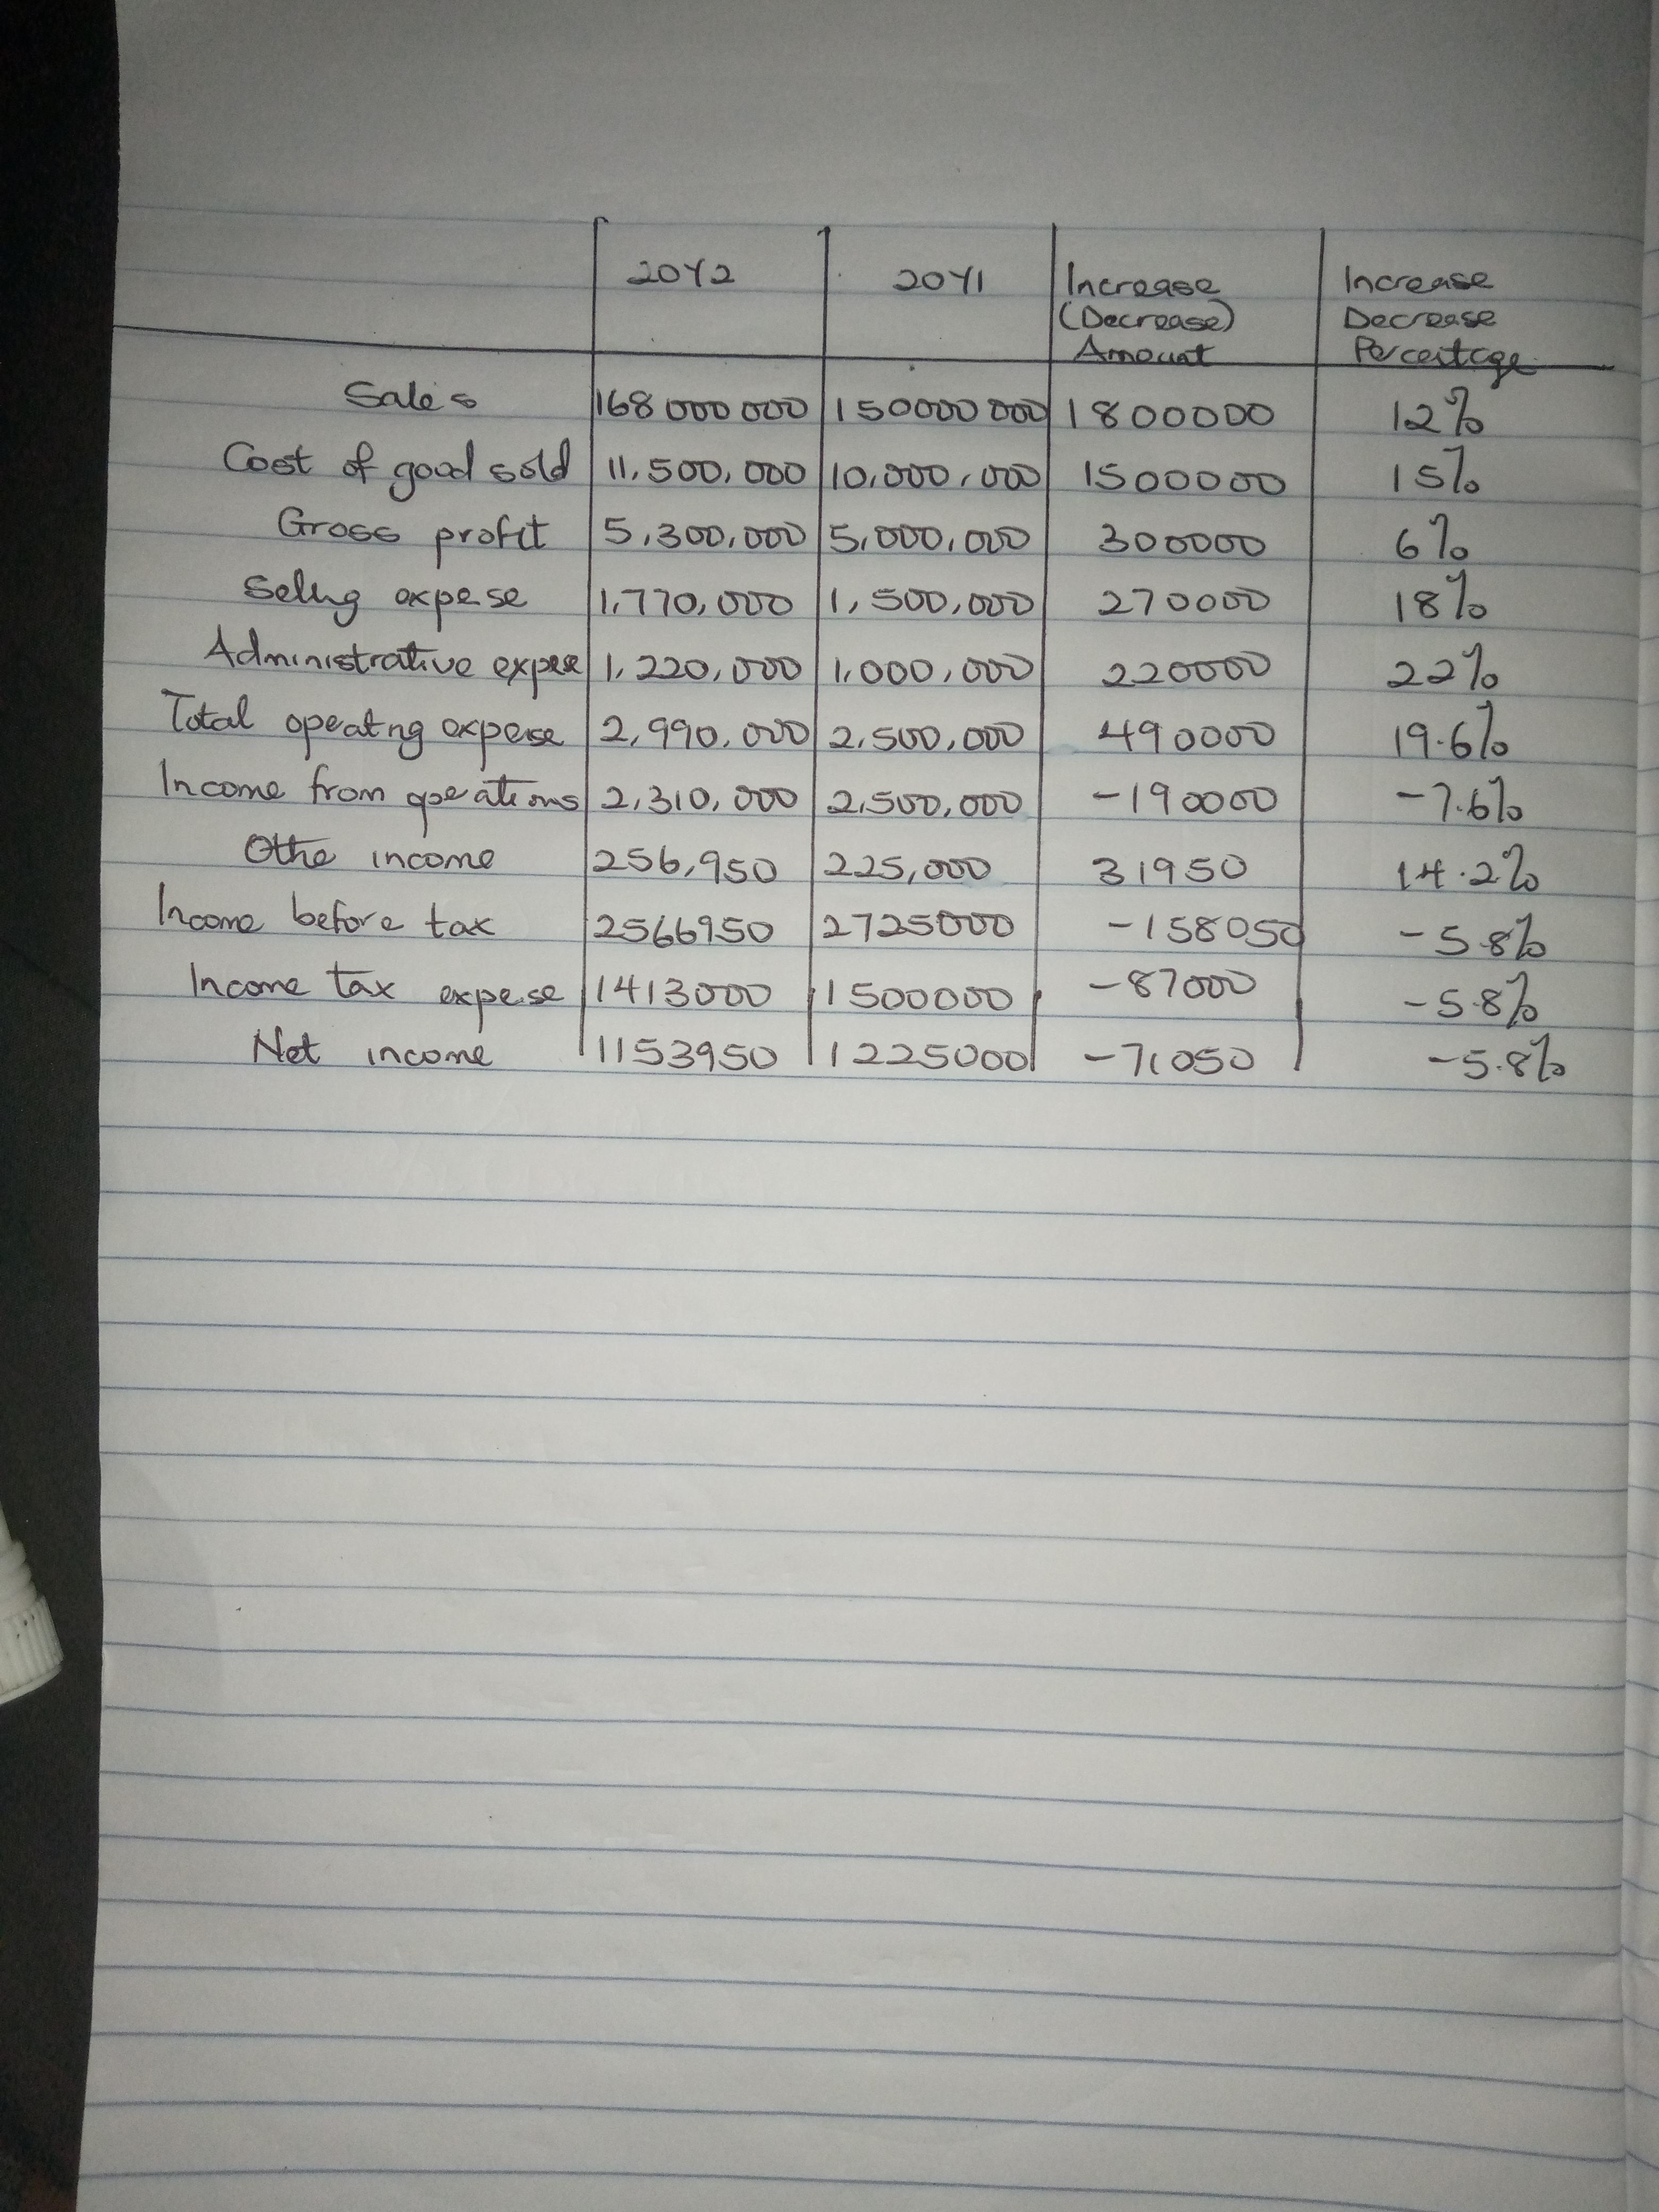 20Y2 20Y1 Increase (Decrease) Amount Increase Decrease Percentage
Sales 168000000 150000000 1800000 12%
Cost of good sold 11,500,000 10,000,000 1500000 15%
Gross profit 5,300,000 5,000,000 300000 6%
Sellng expese 1,770,000 1,500,000 270000 18%
Administrative expese 1,220,000 1,000,000 220000 22%
Total operatng expese 2,990,000 2,500,000 490000 19.6%
Income from operations 2,310,000 2,500,000 -190000 -7.6%
Othe income 256,950 225,000 31950 14.2%
Income before tax 2566950 2725000 -158050 -5.8%
Income tax expese 1413000 1500000 -87000 -5.8%
Net income 1153950 1225000 -71050 -5.8%